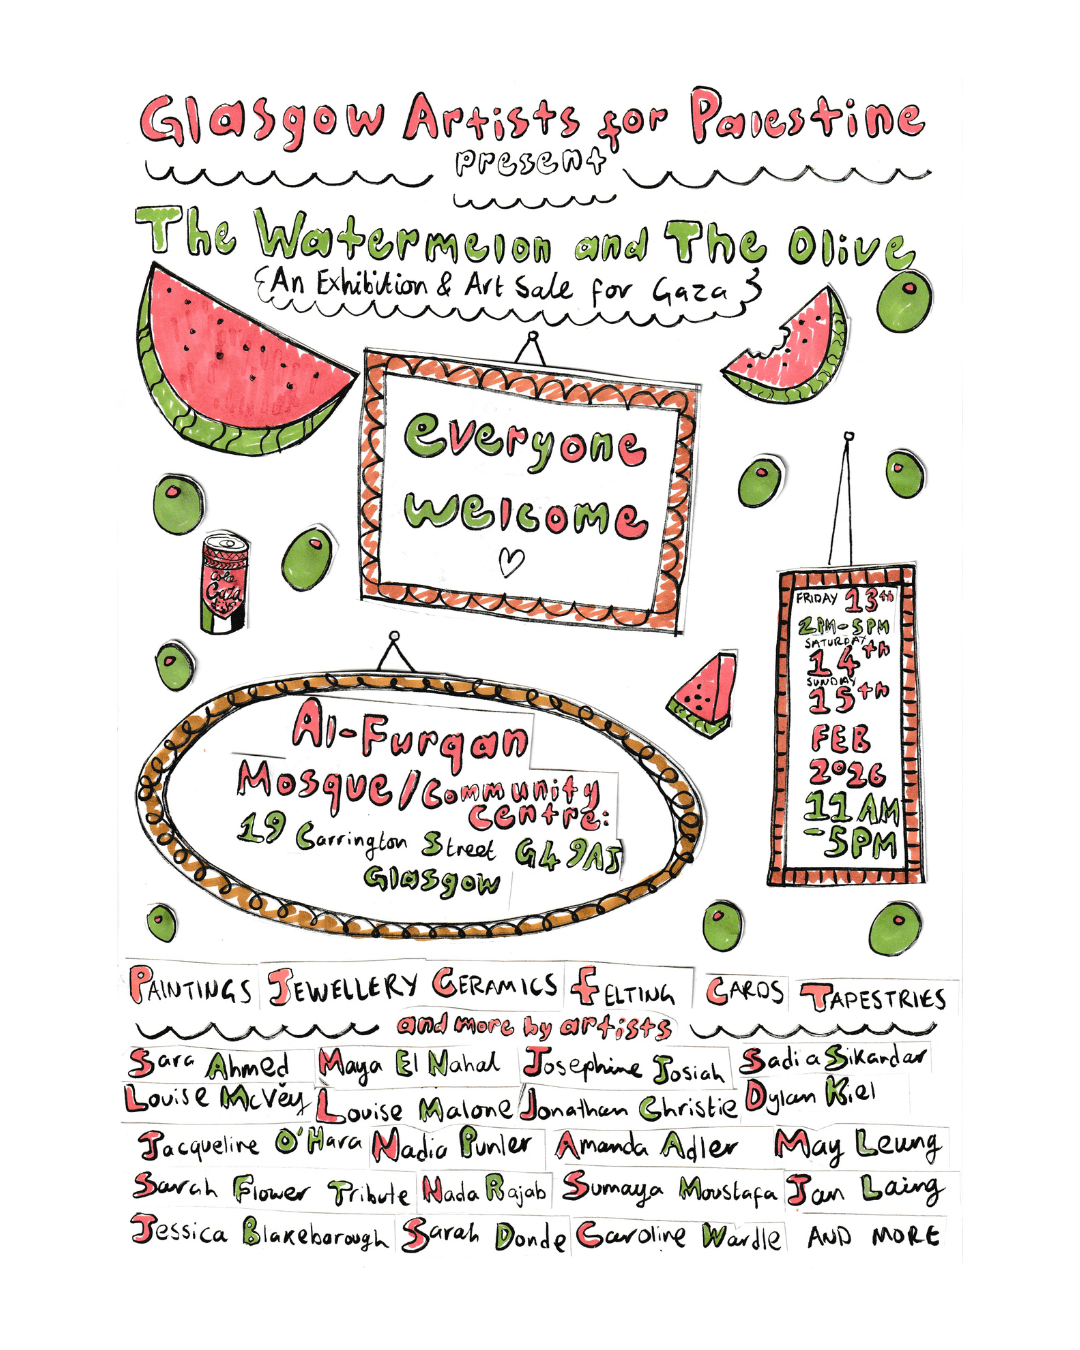 Glasgow Artists for Palestine
present
The Watermelon and The Olive
{An Exhibition & Art Sale for Gaza}
everyone
welcome
Cola
Gaza
FRIDAY 13th
2PM-5PM
SATURDAY
14th
SUNDAY
15th
FEB
2026
11AM
-5PM
Al-Furqan
Mosque/Community
Centre:
19 Carrington Street G4 9AJ
Glasgow
PAINTINGS JEWELLERY CERAMICS FELTING CARDS TAPESTRIES
and more by artists
Sara Ahmed Maya El Nahal Josephine Josiah Sadia Sikandar
Louise McVey Louise Malone Jonathan Christie Dylan Kiel
Jacqueline O'Hara Nadia Punler Amanda Adler May Leung
Sarah Flower Tribute Nada Rajab Sumaya Moustafa Jan Laing
Jessica Blakeborough Sarah Donde Caroline Wardle AND MORE